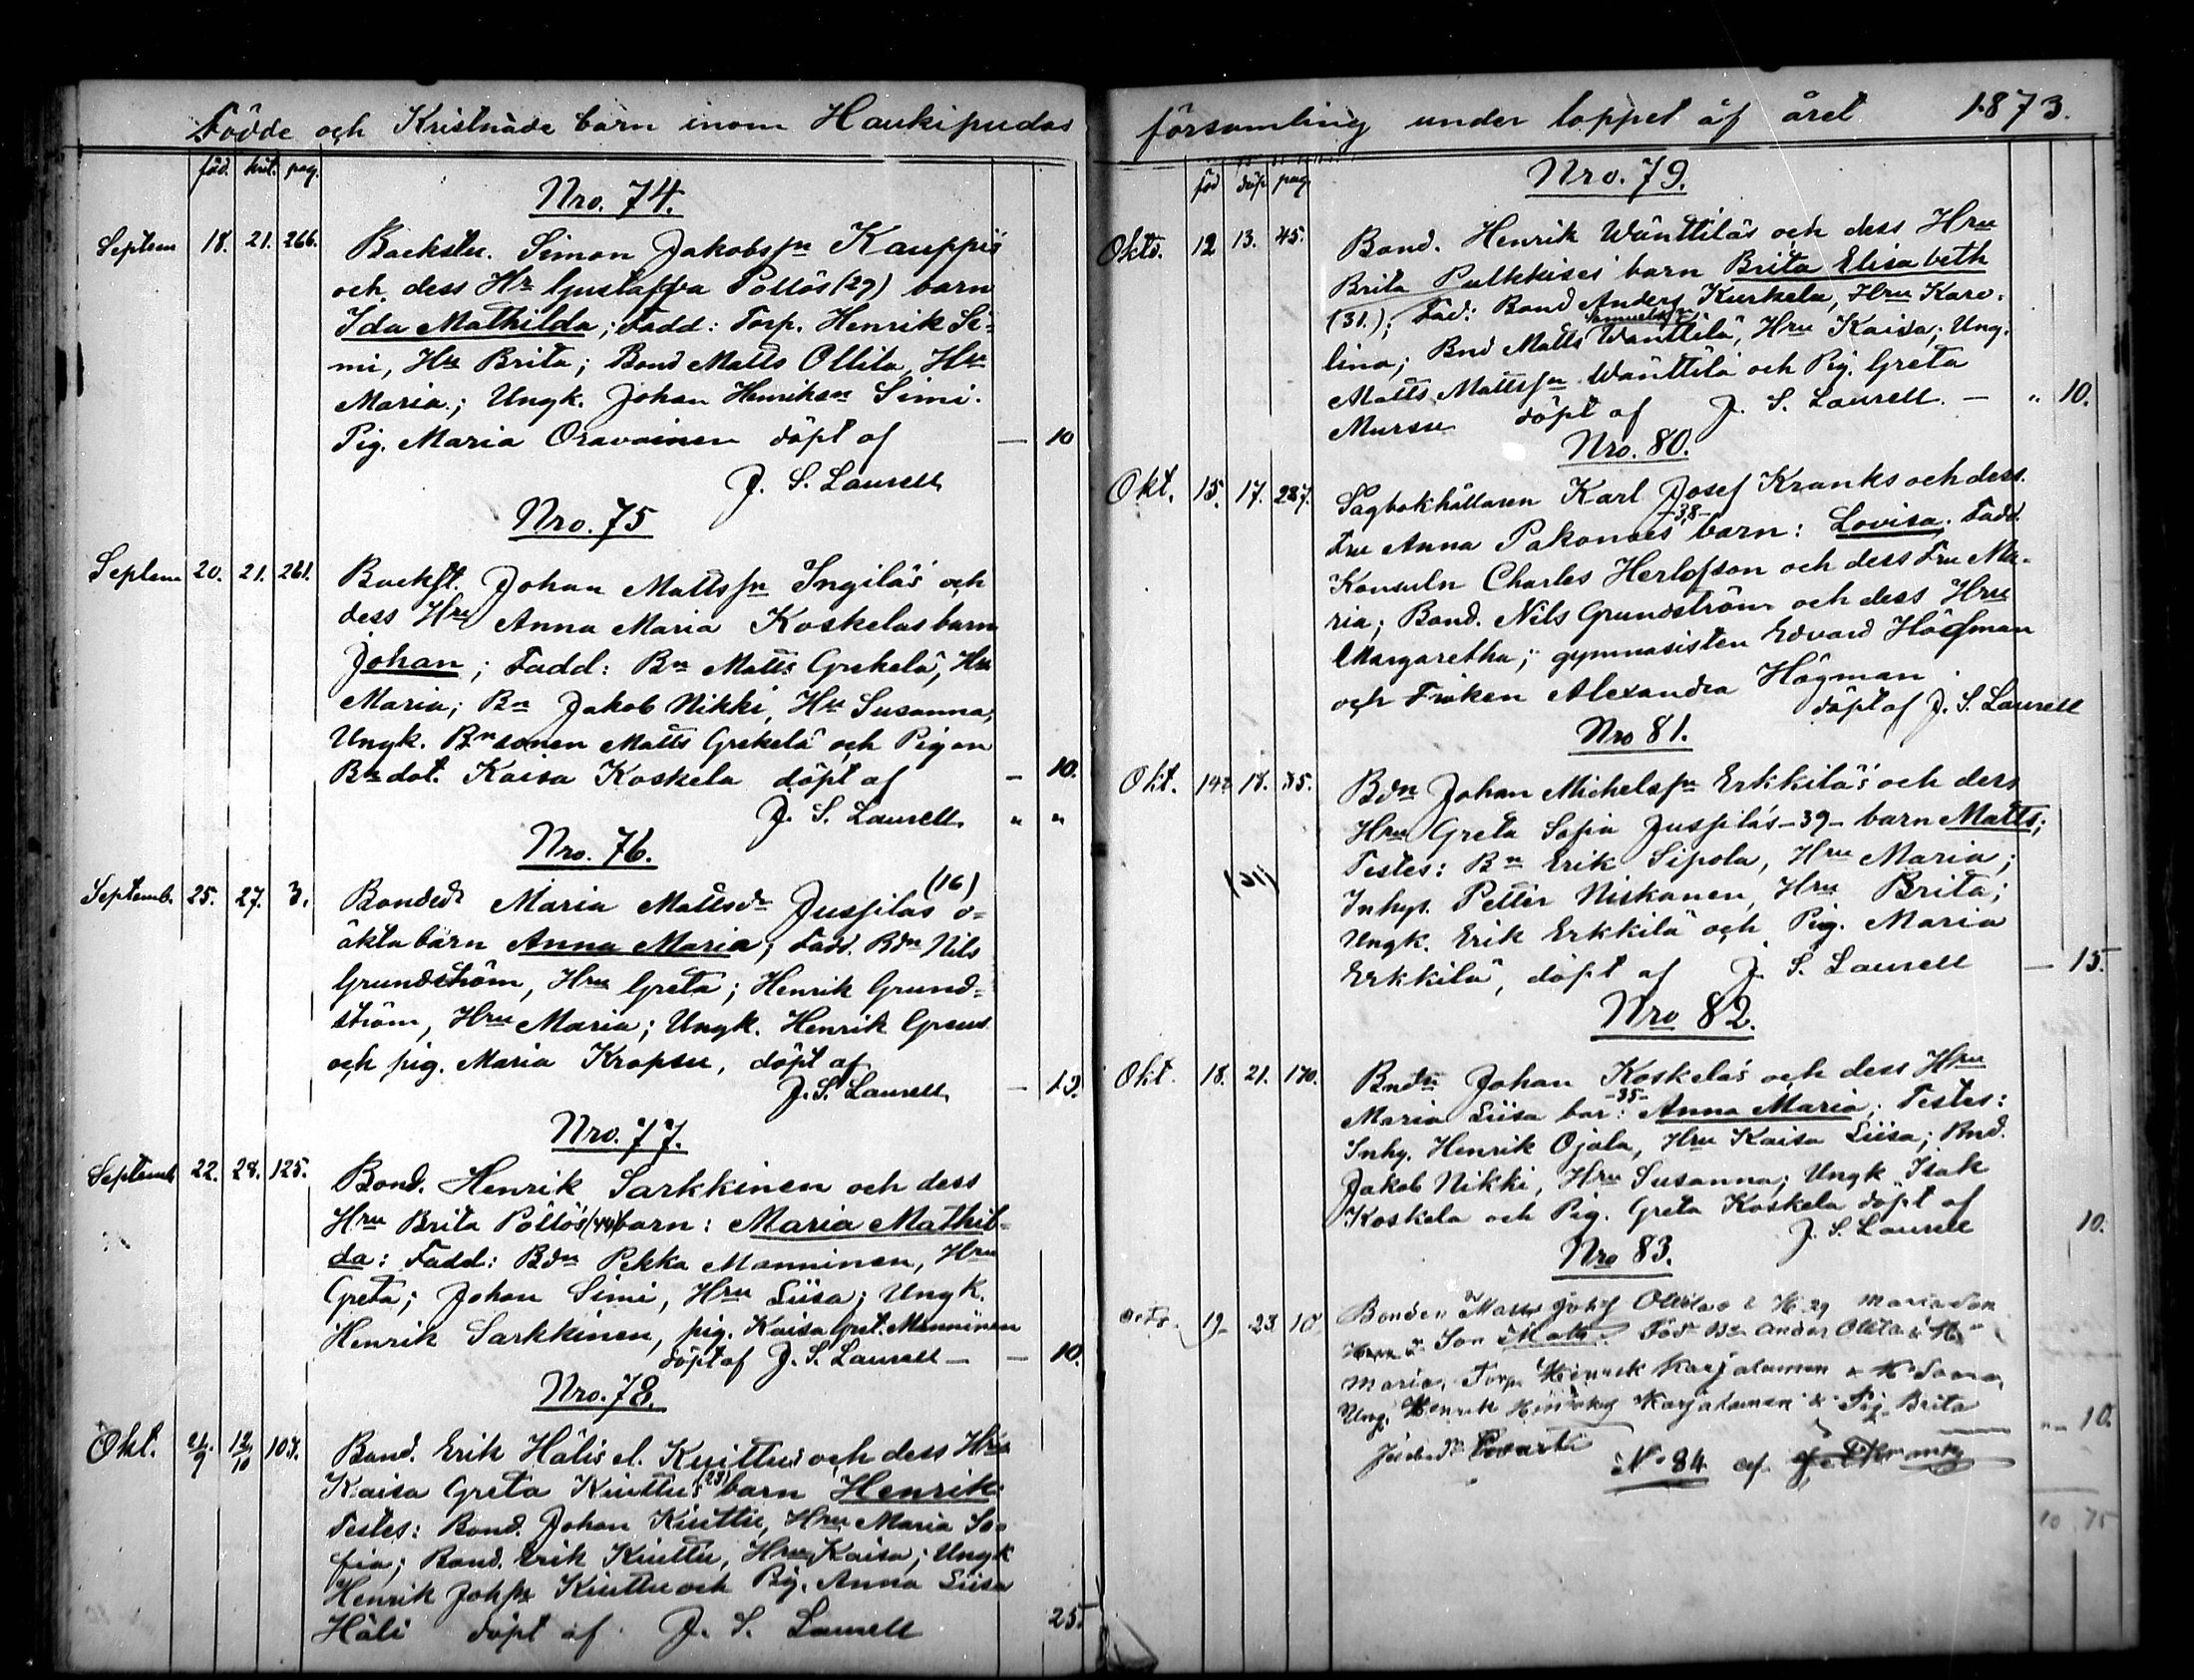 Födde och Kristnade barn inom Haukipudas
föd. krist. pag.
Nro. 74.
Septem 18. 21. 266. Backstu. Simon Jakobsſn Kauppis
och dess Hr Gustafva Pöllös (29) barn
Ida Mathilda; Fadd: Torp. Henrik Si-
mi, Hu Brita; Bond Matts Ollila, Hu
Maria; Ungk. Johan Henriksn Simi.
Pig. Maria Oravainen döpt af — 10
J. S. Laurell
Nro. 75
Septem 20. 21. 261. Backst. Johan Mattsſn Ingiläs och
dess Hru Anna Maria Koskelas barn
Johan; Fadd: Bn Matts Grekelä, Hu
Maria; Bn Jakob Nikki, Hu Susanna;
Ungk. Bnsonen Matts Grekelä och Pigan
Bndot. Kaisa Koskela döpt af — 10.
J. S. Laurell " "
Nro. 76.
Septemb. 25. 27. 3. Bonded. Maria Mattsdr Jussilas (16) o-
äkta barn Anna Maria; Fadd. Bdn Nils
Grundström, Hru Greta; Henrik Grund-
ström, Hru Maria; Ungk. Henrik Grund
och pig. Maria Kropsu, döpt af
J. S. Laurell —
Nro. 77.
Septemb 22. 28. 125. Bond. Henrik Sarkkinen och dess
Hru Brita Pöllös (44) barn: Maria Mathil-
da: Fadd: Bdn Pekka Manninen, Hru
Greta; Johan Simi, Hru Liisa; Ungk.
Henrik Sarkkinen, pig. Kaisa Gret. Manninen
döpt af J. S. Laurell — — 10.
Nro. 78.
Okt. 21/9 12/10 103. Bond. Erik Hälis el. Kuittus och dess Hru
Kaisa Greta Kuittus (23) barn Henrik
Testes: Bond. Johan Kuittu, Hru Maria So-
fia; Bond. Erik Kiuttu, Hru Kaisa; Ungk
Henrik Johſn Kiuttu och Pig. Anna Liisa
Häli döpt af J. S. Laurell 25.
församling under loppet af året 1873.
föd döp pag.
Nro. 79.
Okto. 12 13. 45. Bond. Henrik Wänttiläs och dess Hru
Brita Pulkkises barn Brita Elisabeth
(31.); Fad: Bond Anders Kurkela, Hru Karo-
lina; Bnd Matts Samuelsſn Wänttilä, Hru Kaisa; Ung.
Matts Mattsſn Wänttilä och Pig. Greta
Mursu döpt af J. S. Laurell. — " 10.
Nro. 80.
Okt. 15. 17. 227. Sågbokhållaren Karl Josef Kranks och dess
Fru Anna Pakonaes -38- barn: Lovisa. Fadd.
Konsuln Charles Herlofson och dess Fru Ma-
ria; Bond. Nils Grundström och dess Hru
Margaretha; gymnasisten Edvard Högman
och Fröken Alexandra Högman
döpt af J. S. Laurell
Nro 81.
Okt. 14 18. 35. Bdn Johan Michelsſn Erkkiläs och dess
Hru Greta Sofia Jussilas -39- barn Matts;
Testes: Bn Erik Sipola, Hru Maria;
Inhys. Petter Niskanen, Hru Brita;
Ungk. Erik Erkkilä och Pig. Maria
Erkkilä, döpt af J. S. Laurell — 15.
Nro 82.
Okt. 18. 21. 170. Bndn Johan Koskelas och dess Hru
Maria Liisa bar: -35- Anna Maria. Testes:
Inhy. Henrik Ojala, Hru Kaisa Liisa; Bnd.
Jakob Nikki, Hru Susanna; Ungk Isak
Koskela och Pig. Greta Koskela döpt af
J. S. Laurell 10.
Nro 83.
19 23 10 Bonden Matts Ollilas & H. 29 Maria
Son Matts. Bn Ander Ollila & H
Maria, Torp. Henrik Karjalainen & H
Ung. Henrik Karjalainen & Pig. Brita
" 10.
N. 84 af
10 75